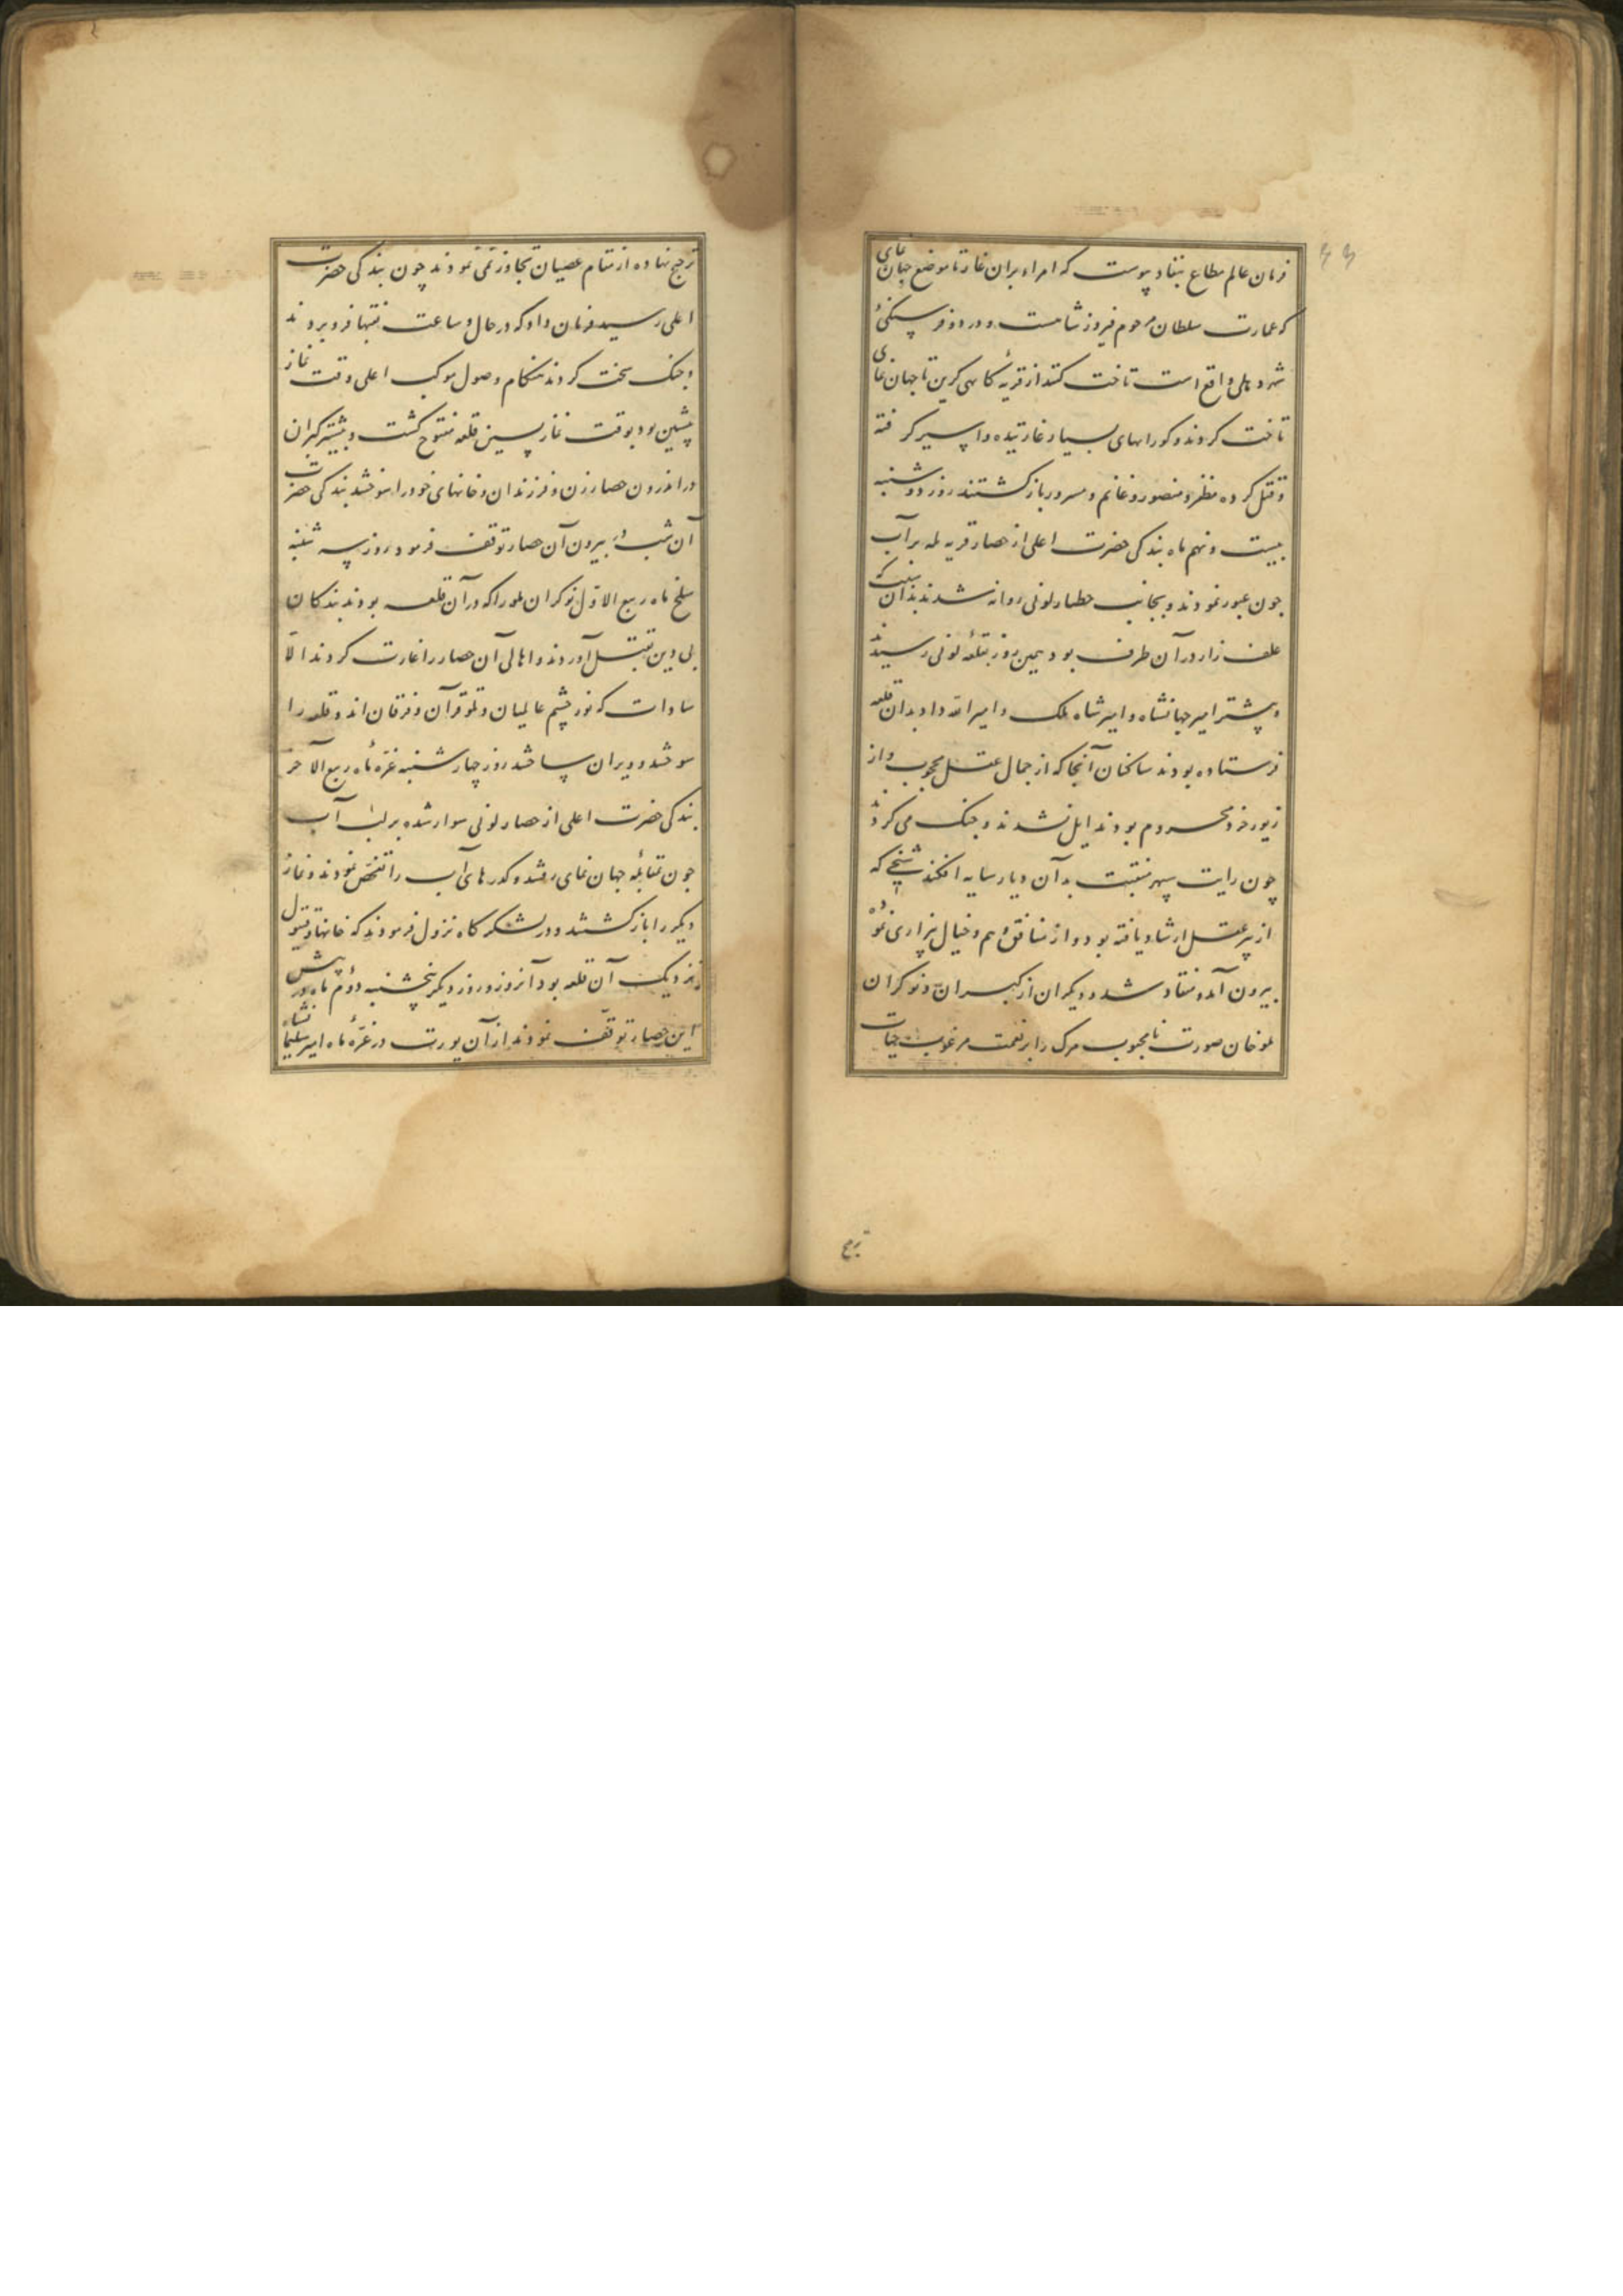 فرمان عالم مطاع بنفاد پیوست که امراء بران غار تا موضع جهان نمای
که عمارت سلطان مرحوم فیروز شاهست و در دو فرسنگیٔ
شهر دهلی واقع است تاخت کنند از قریهٔ کاهی کرین تا جهان نمای
تاخت کردند و کورانهای بسیار غارتیده و اسیر کرفته
و قتل کرده مظفر و منصور و غانم و مسرور باز کشتند روز دوشنبه
بیست و نهم ماه بندکی حضرت اعلی از حصار قریه لمه بر آب
جون عبور نمودند و بجانب حصار لونی روانه شدند بدان نیت که
علف زار در آن طرف بود همین روز بقلعه لونی رسیدند
و پیشتر امیر جهانشاه و امیر شاه ملک و امیر الله داد بدان قلعه
فرستاده بودند ساکنان آنجا که از جمال عقل محجوب و از
زیور خرد محروم بودند ایل نشدند و جنک می کردند
چون رایت سپهر منقبت بدان دیار سایه افکند شیخی که
از پیر عقل ارشاد یافته بود و از منافق وهم و خیال بیزاری نموده
بیرون آمد و منقاد شد و دیکران از کبران و نوکران
ملو خان صورت نامحبوب مرک را بر نعمت مرغوب حیات
ترجیح
ترجیح نهاده از مقام عصیان تجاوز نمی نمودند چون بندکی حضرت
اعلی رسید فرمان داد که در حال و ساعت نقبها فرو بردند
و جنک سخت کردند هنکام وصول موکب اعلی وقت نماز
پیشین بود بوقت نماز پسین قلعه مفتوح کشت و بیشتر کبران
در اندرون حصار زن و فرزندان و خانهای خود را سوختند بندکی حضرت
آن شب بیرون آن حصار توقف فرمود روز سه شنبه
سلخ ماه ربیع الاول نوکران ملو را که در آن قلعه بودند بندکان
بی دین بقتل آوردند و اهالی آن حصار را غارت کردند الا
سادات که نور چشم عالمیان و تلو قرآن و فرقان اند و قلعه را
سوختند و ویران ساختند روز چهارشنبه غرهٔ ماه ربیع الآخر
بندکی حضرت اعلی از حصار لونی سوار شده بر لب آب
جون مقابلهٔ جهان نمای رفتند و کدرهای آب را تفحص نمودند و نماز
دیکر را باز کشتند و در لشکرکاه نزول فرمودند که خانها و قیتول
نزدیک آن قلعه بود آن روز و روز دیکر پنجشنبه دوم ماه در پیش
این حصار توقف نمودند از آن یورت در غرهٔ ماه امیر سلیمانشاه